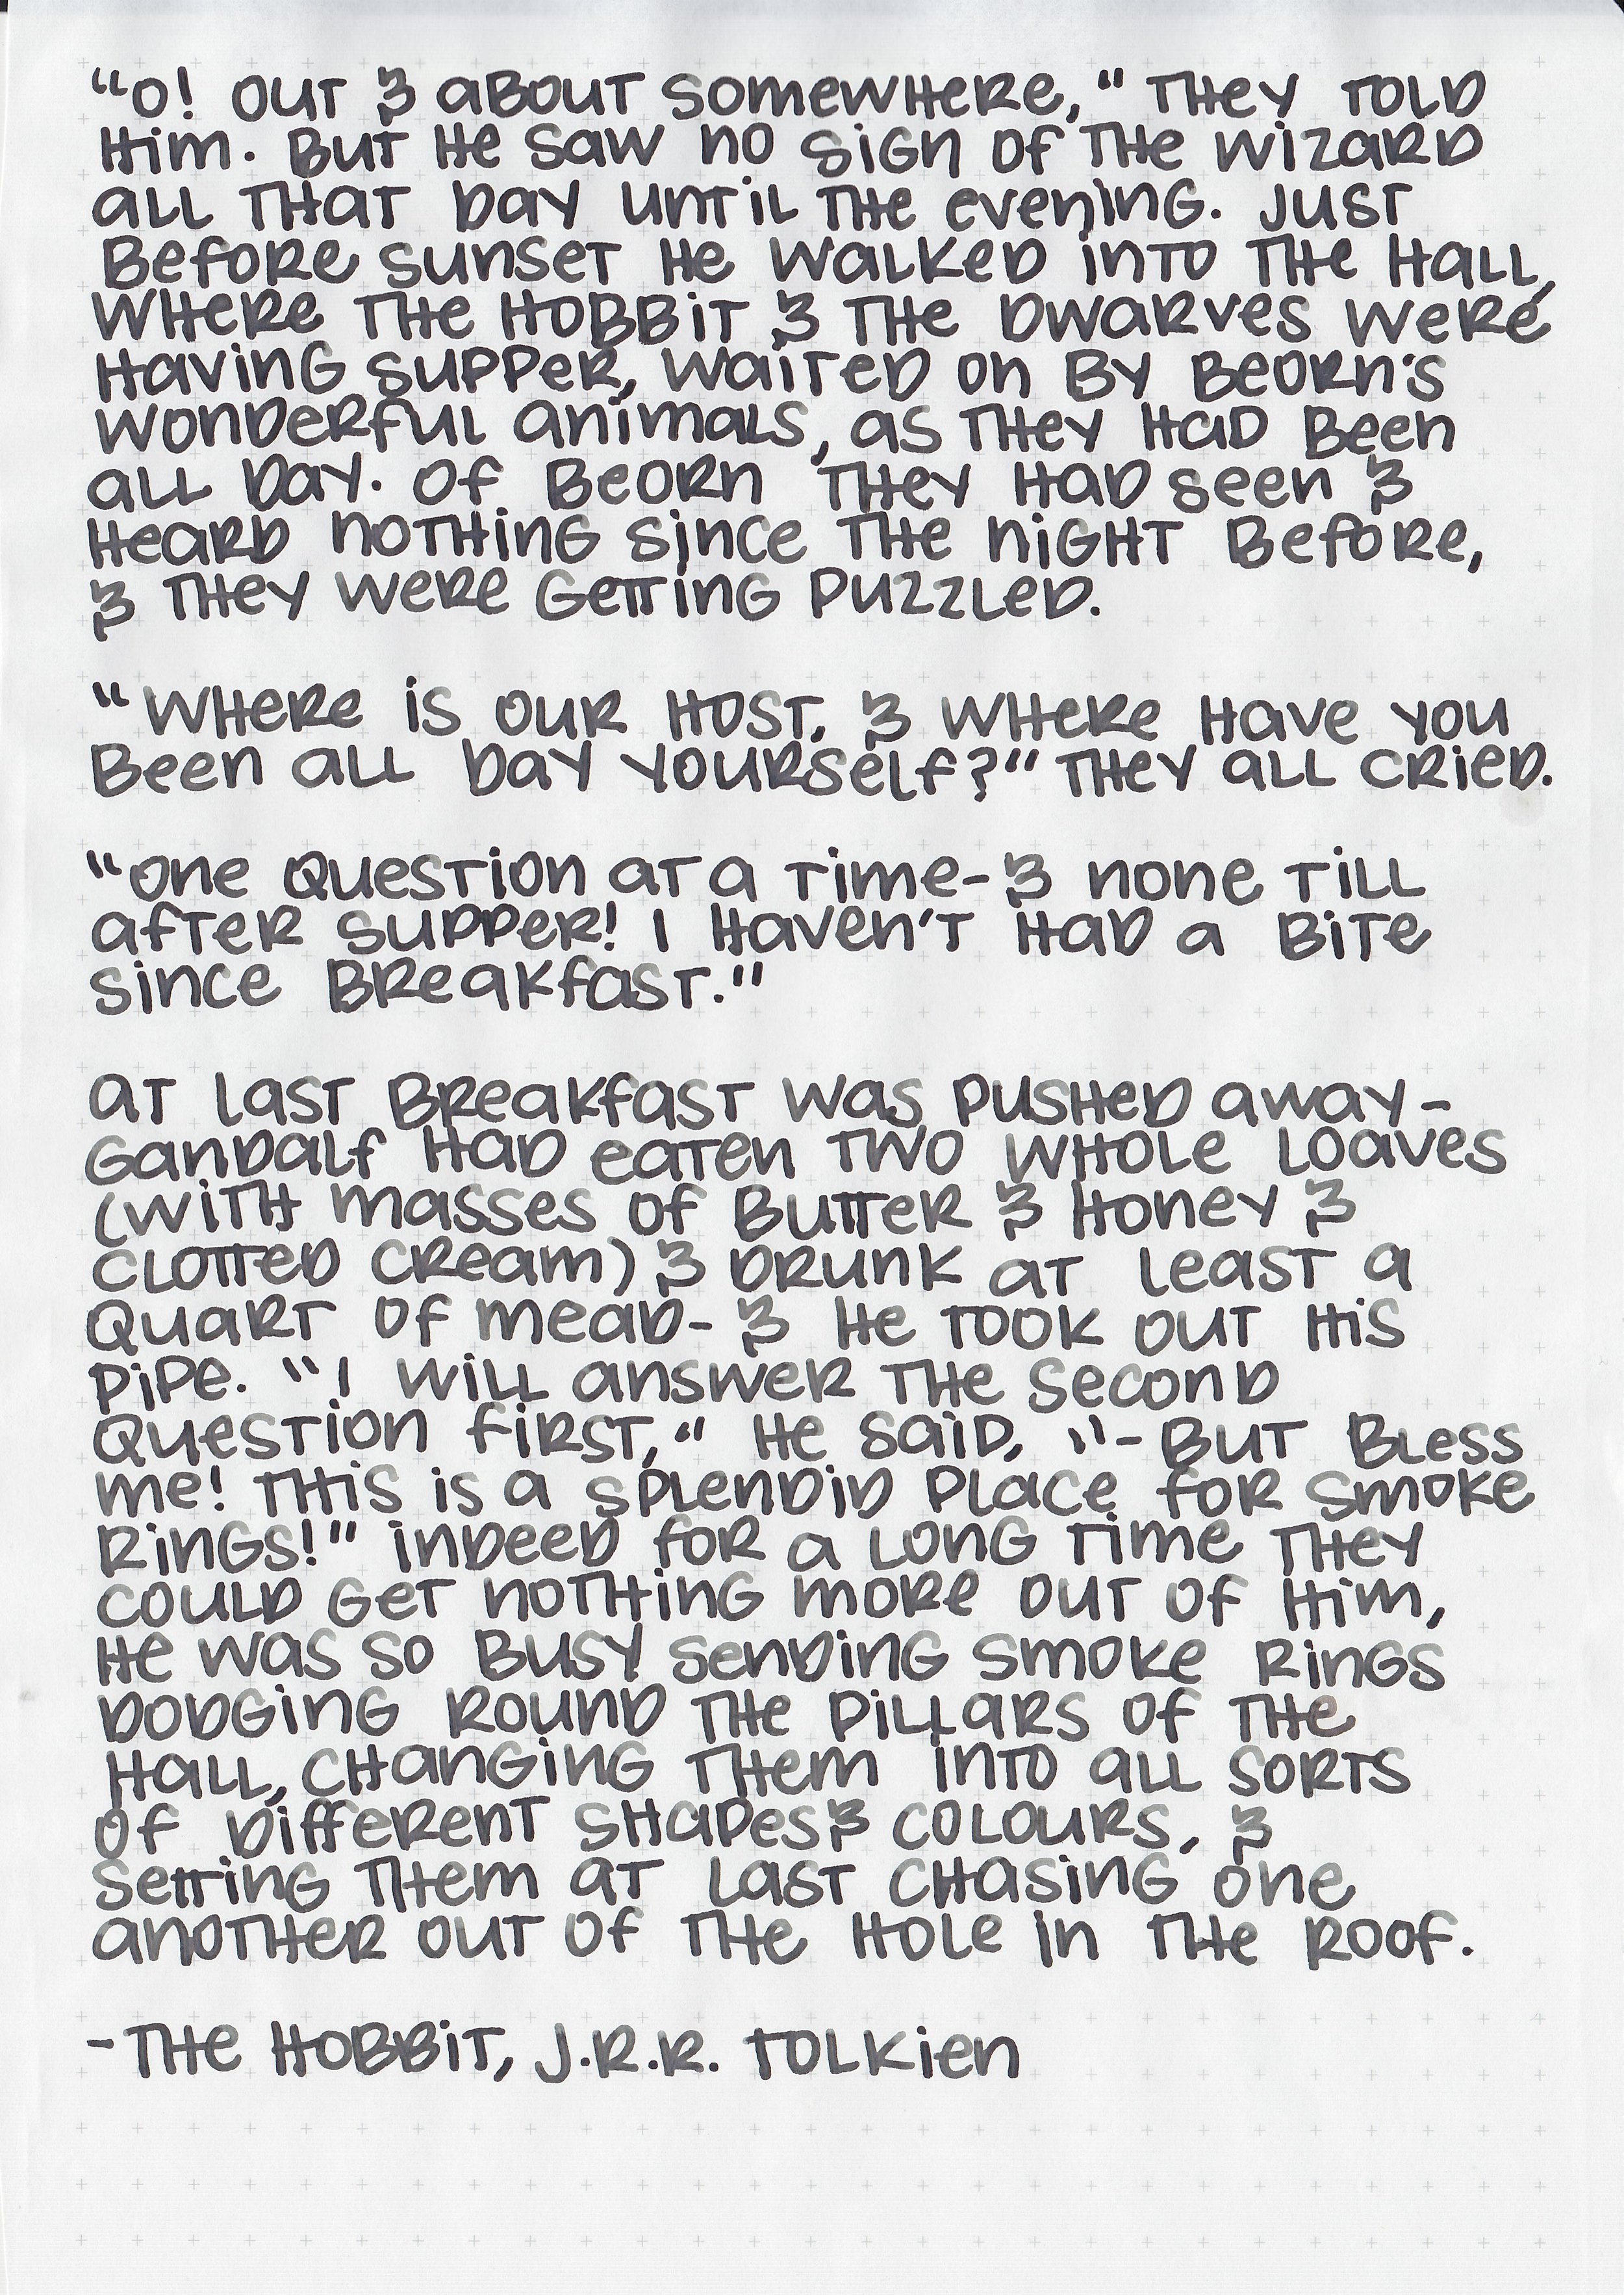 "O! Out & about somewhere," they told
him. But he saw no sign of the wizard
all that day until the evening. Just
before sunset he walked into the hall,
where the hobbit & the dwarves were
having supper, waited on by Beorn's
wonderful animals, as they had been
all day. Of Beorn they had seen &
heard nothing since the night before,
& they were getting puzzled.
"Where is our host, & where have you
been all day yourself?" they all cried.
"One question at a time- & none till
after supper! I haven't had a bite
since breakfast."
At last breakfast was pushed away-
Gandalf had eaten two whole loaves
(with masses of butter & honey &
clotted cream) & drunk at least a
quart of mead- & he took out his
pipe. "I will answer the second
question first," he said, "-but bless
me! this is a splendid place for smoke
rings!" Indeed for a long time they
could get nothing more out of him,
he was so busy sending smoke rings
dodging round the pillars of the
hall, changing them into all sorts
of different shapes & colours, &
setting them at last chasing one
another out of the hole in the roof.
-The Hobbit, J.R.R. Tolkien